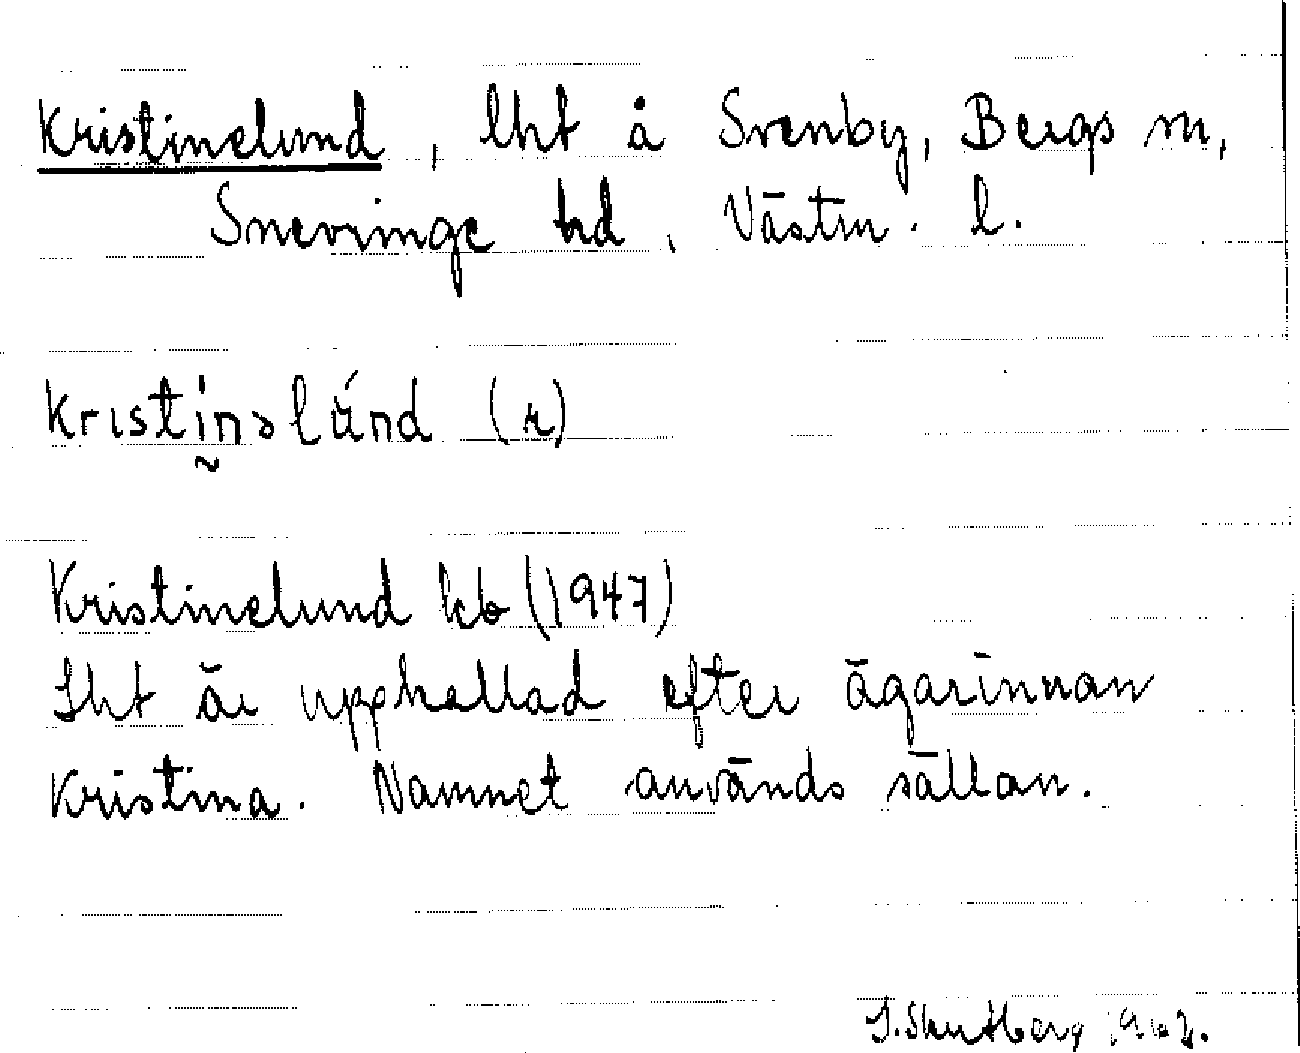 Kristinelund, lht å Svenby, Bergs sn,
Snevringe hd, Västm. l.
Kristinəlúnd (r)
Kristinelund kb (1947)
Lht är uppkallad efter ägarinnan
Kristina. Namnet används sällan.